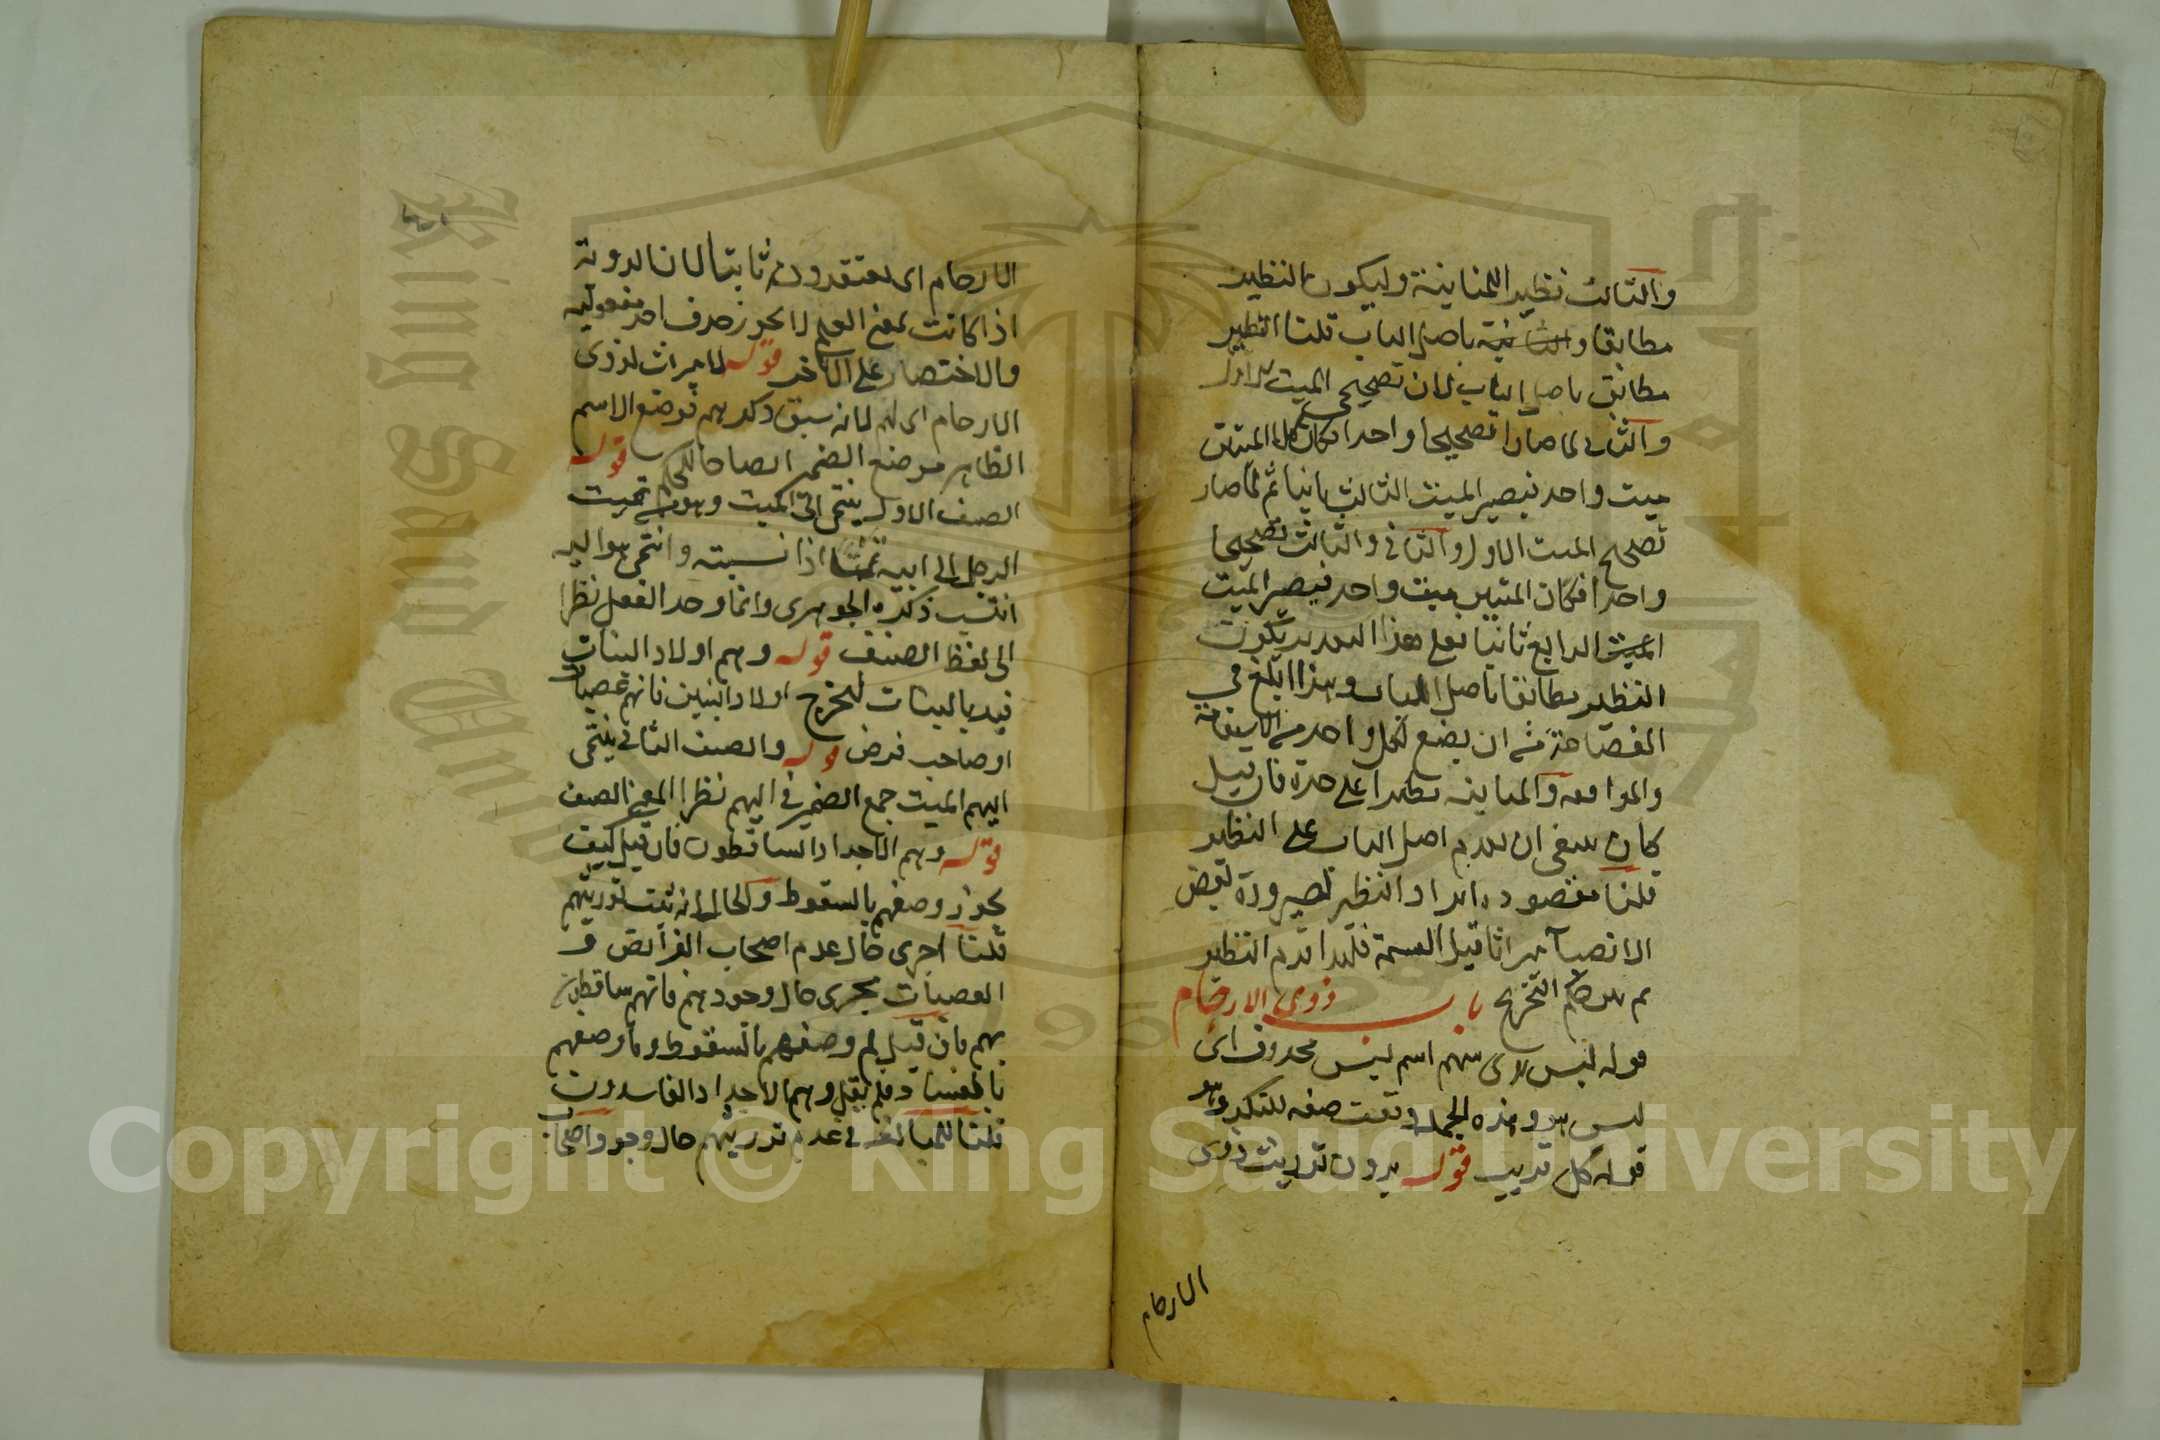 والثالث نظير للمباينة وليكون النظير
مطابقا والثانية باصل الباب قلنا النظير
مطابق باصل الباب لان تصحيح الميت الاول
والثاني لما صارا تصحيحا واحدا فكان الميتين
ميت واحد فيصير الميت الثالث ثانيا ثم لما صار
تصحيح الميت الاول والثاني والثالث تصحيحا
واحدا فكان الميتين ميت واحد فيصير الميت
الميت الرابع ثانيا فعلى هذا التقدير يكون
النظير مطابقا باصل الباب وهذا ابلغ في
الفصاحة من ان يضع لكل واحد من الاستقامة
والموافقة والمباينة نظيرا على حدة فان قيل
كان ينبغي ان يقدم اصل الباب على النظير
قلنا مقصوده ايراد النظير لصيرورة بعض
الانصباء ميراثا قبل القسمة فلهذا قدم النظير
باب ذوي الارحام
قوله ليس بذي سهم اسم ليس محذوف اي
ليس هو وهذه الجملة وقعت صفة للنكرة وهو
قوله كل قريب قوله يرون توريث ذوي
الارحام
الارحام اى يعتقدون ثابتا لان الروية
اذا كانت بمعنى العلم لا يجوز حذف احد مفعوليه
والاختصار على الآخر قوله لا ميراث لذوى
الارحام اى لهم لانه سبق ذكرهم فوضع الاسم
الظاهر موضع الضمير ايضاحا للحكم قوله
الصنف الاول ينتمى الى الميت وهو من نميت
الرجل الى ابيه نميا اذا نسبته وانتمى هو اليه
انتسب ذكره الجوهرى وانما وحد الفعل نظرا
الى لفظ الصنف قوله وهم اولاد البنات
قيد بالبنات ليخرج اولاد البنين فانهم عصبات
او صاحب فرض قوله والصنف الثانى ينتمى
اليهم الميت جمع الضمير فى اليهم نظرا الى معنى الصنف
قوله وهم الاجداد الساقطون فان قيل كيف
يجوز وصفهم بالسقوط والحال انه ثبت توريثهم
قلنا اجرى حال عدم اصحاب الفرائض و
العصبات مجرى حال وجودهم فانهم ساقطون
بهم فان قيل لم وصفهم بالسقوط وما وصفهم
بالفساد فلم يقل وهم الاجداد الفاسدون
قلنا للمبالغة فى عدم توريثهم حال وجود اصحاب